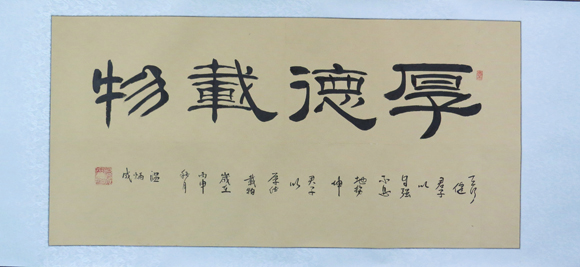 厚德載物
天行健君子以自强不息地势坤君子以厚德載物歲在丙申秋月温炳成